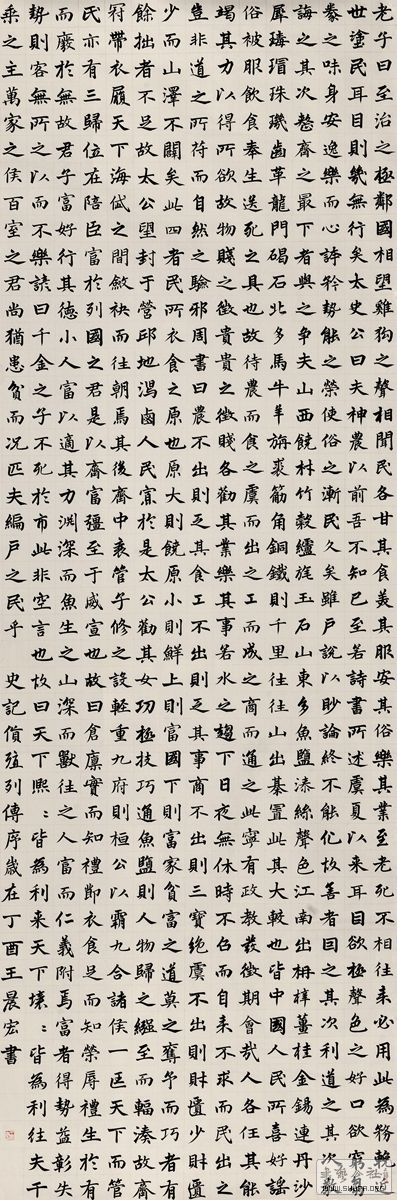 老子曰至治之極鄰國相望雞狗之聲相聞民各甘其食美其服安其俗樂其業至老死不相往來必用此為務輓
世塗民耳目則幾無行矣太史公曰夫神農以前吾不知已至若詩書所述虞夏以來耳目欲極聲色之好口欲窮
豢之味身安逸樂而心誇矜勢能之榮使俗之漸民久矣雖戶說以眇論終不能化故善者因之其次利道之其次
誨之其次整齊之最下者與之爭夫山西饒材竹穀纑旄玉石山東多魚鹽漆絲聲色江南出枏梓薑桂金錫連丹沙
犀瑇瑁珠璣齒革龍門碣石北多馬牛羊旃裘筋角銅鐵則千里往往山出棊置此其大較也皆中國人民所喜好謠
俗被服飲食奉生送死之具也故待農而食之虞而出之工而成之商而通之此寧有政教發徵期會哉人各任其能
竭其力以得所欲故物賤之徵貴貴之徵賤各勸其業樂其事若水之趨下日夜無休時不召而自來不求而民出之
豈非道之所符而自然之驗邪周書曰農不出則乏其食工不出則乏其事商不出則三寶絕虞不出則財匱少財匱
少而山澤不闢矣此四者民所衣食之原也原大則饒原小則鮮上則富國下則富家貧富之道莫之奪予而巧者有
餘拙者不足故太公望封于營邱地潟鹵人民寡於是太公勸其女功極技巧通魚鹽則人物歸之繈至而輻湊故齊
冠帶衣履天下海岱之間斂袂而往朝焉其後齊中衰管子修之設輕重九府則桓公以霸九合諸侯一匡天下而管
氏亦有三歸位在陪臣富於列國之君是以齊富彊至于威宣也故曰倉廩實而知禮節衣食足而知榮辱禮生於有
而廢於無故君子富好行其德小人富以適其力淵深而魚生之山深而獸往之人富而仁義附焉富者得勢益彰失
勢則客無所之以而不樂諺曰千金之子不死於市此非空言也故曰天下熙〻皆為利來天下壤〻皆為利往夫千
乘之主萬家之侯百室之君尚猶患貧而況匹夫編戶之民乎 史記貨殖列傳序歲在丁酉王晨宏書